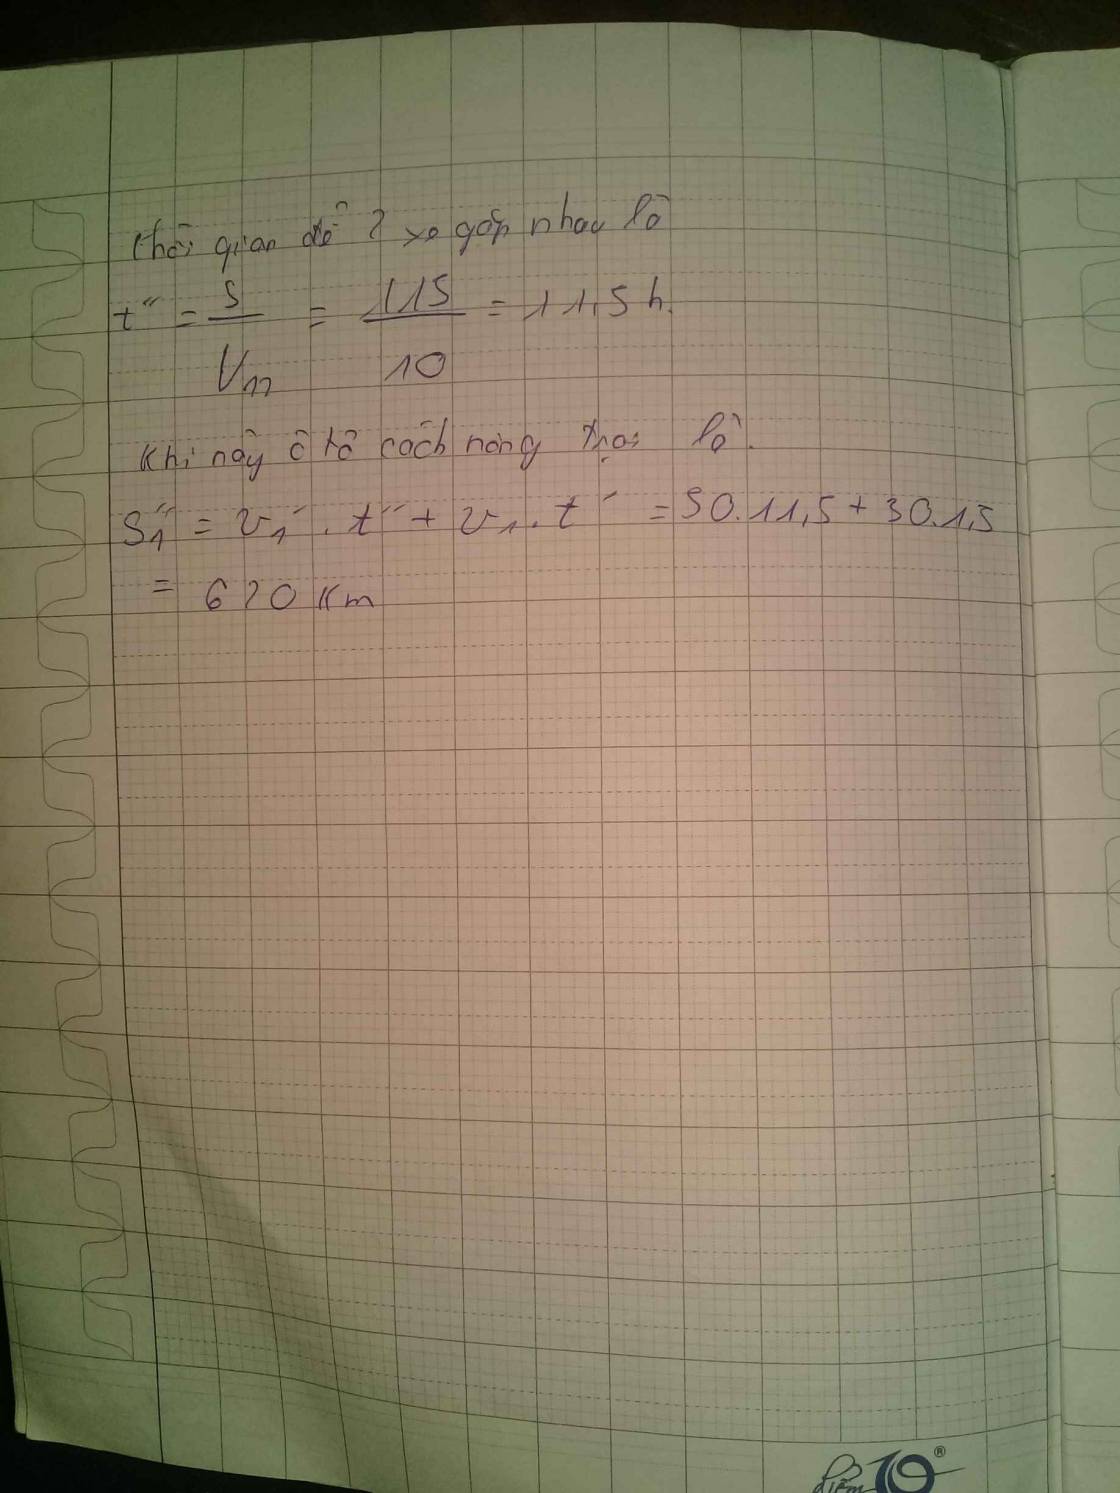 thời gian để 2 xe gặp nhau là
t" = S / V12 = 115 / 10 = 11,5 h.
Khi này ô tô cách nông trại là.
S1" = v1' . t" + v1 . t' = 50.11,5 + 30.1,5
= 620 Km
điểm 10®